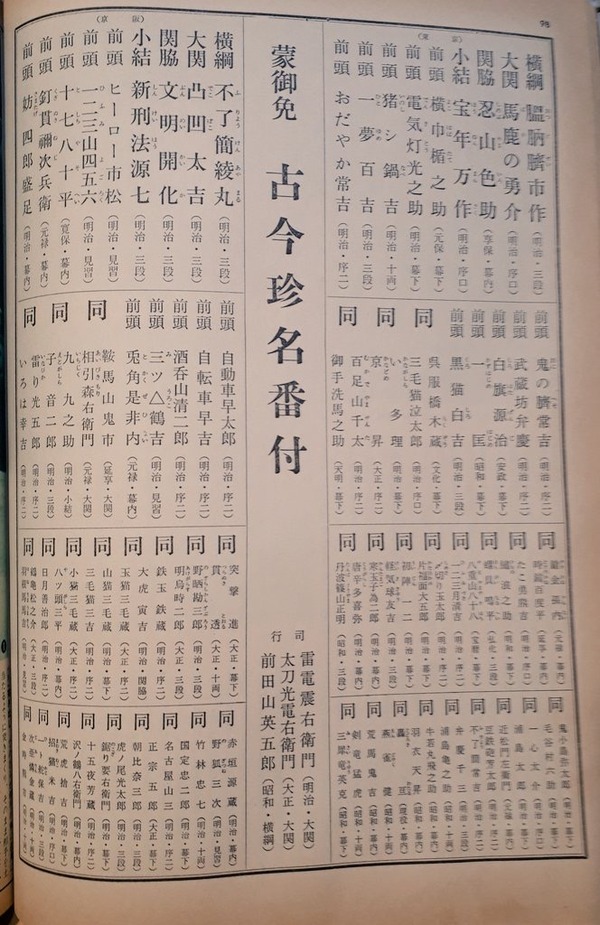 98
(東京)
横綱 膃肭臍市作(明治・三段)
大関 馬鹿の勇介(明治・序口)
関脇 忍山色助(享保・幕内)
小結 宝年万作(明治・序口)
前頭 横巾楯之助(元保・幕下)
前頭 電気灯光之助(明治・幕下)
前頭 猪シ鍋吉(明治・十両)
前頭 一夢百吉(明治・三段)
前頭 おだやか常吉(明治・序二)
前頭 鬼の臍常吉(明治・序二)
前頭 武蔵坊弁慶(明治・幕下)
前頭 白旗源治(安政・幕下)
前頭 匡(昭和・幕下)
前頭 黒猫白吉(明治・三段)
同 呉服橋木蔵(文化・幕下)
三毛猫泣太郎(明治・序口)
同 い 多理(明治・幕下)
京 昇(大正・序二)
同 百足山千太(大正・幕下)
御手洗馬之助(天明・幕下)
同 一二三月清吉(明治・序二)
同 〆切り玉太郎(明治・序二)
片福面大五郎(明治・幕下)
同 初陣一二(明治・幕下)
軽気球友吉(明治・三段)
同 寒玉子為二郎(明治・序二)
唐辛多喜弥(明治・幕下)
同 丹波篠山正明(昭和・三段)
同 鬼小島弥太郎(明治・幕内)
毛谷村六助(明治・幕下)
同 一心太介(明治・序口)
近松門左衛門(文禄・幕内)
同 不了簡常吉(明治・序二)
弁慶千三(昭和・十両)
同 浦島亀之助(昭和・三段)
牛若丸飛之助(昭和・幕下)
同 羽衣天昇(昭和・幕下)
同 燕雀健(昭和・三段)
荒馬鬼吉(昭和・幕下)
同 剣竜猛虎(昭和・序二)
三犀竜英克(昭和・十両)
蒙御免 古今珍名番付
行司
雷電震右衛門(明治・大関)
太刀光電右衛門(大正・大関)
前田山英五郎(昭和・横綱)
(京阪)
横綱 不了簡綾丸(明治・三段)
大関 凸凹太吉(明治・三段)
関脇 文明開化(明治・幕下)
小結 新刑法源七(明治・三段)
前頭 ヒーロー市松(明治・見習)
前頭 一二三山四五六(明治・見習)
前頭 十七八十平(寛保・幕内)
前頭 釘貫禰次兵衛(元禄・幕内)
前頭 妨四郎盛足(明治・幕内)
前頭 自動車早太郎(明治・序二)
前頭 自転車早吉(明治・序二)
前頭 酒呑山清二郎(明治・序二)
前頭 三ツ△鶴吉(明治・見習)
前頭 兎角是非内(元禄・幕内)
同 鞍馬山鬼市(延享・大関)
相引森右衛門(元禄・大関)
同 九九之助(明治・小結)
子音二郎(明治・序二)
同 雷り光五郎(明治・序二)
いろは幸吉(明治・序二)
同 突撃進(大正・幕下)
貫透(大正・十両)
同 野晒勘三郎(明治・三段)
明烏時二郎(大正・三段)
同 鉄玉鉄蔵(明治・序二)
大虎寅吉(明治・関脇)
同 玉猫三毛蔵(大正・序二)
山猫三毛蔵(明治・幕下)
同 三毛猫三吉(明治・序二)
小猫三毛蔵(大正・三段)
同 八ツ頭三平(明治・幕内)
日月善治郎(明治・序二)
同 鶴亀松之介(大正・三段)
同 赤垣源蔵(明治・幕内)
野狐三次(明治・見習)
同 竹林忠七(明治・十両)
国定忠二郎(明治・幕下)
同 名古屋山三(明治・序二)
正宗五郎(大正・幕下)
同 朝比奈三郎(明治・三段)
虎ノ尾光太郎(明治・三段)
同 錣り要右衛門(明治・幕下)
十五夜芳蔵(明治・序二)
同 沢ノ鶴八右衛門(明治・幕下)
荒虎捨吉(明治・幕内)
同 招猫米吉(明治・序口)